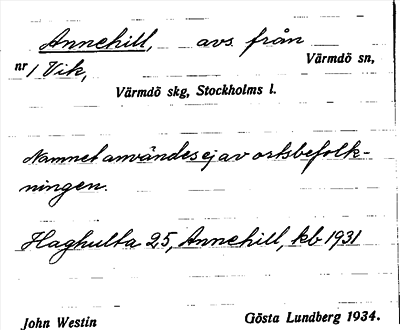 Annehill, avs. från
nr 1 Vik, Värmdö sn,
Värmdö skg, Stockholms l.
Namnet användes ej av ortsbefolk-
ningen.
Haghulta 25, Annehill, kb 1931
John Westin Gösta Lundberg 1934.